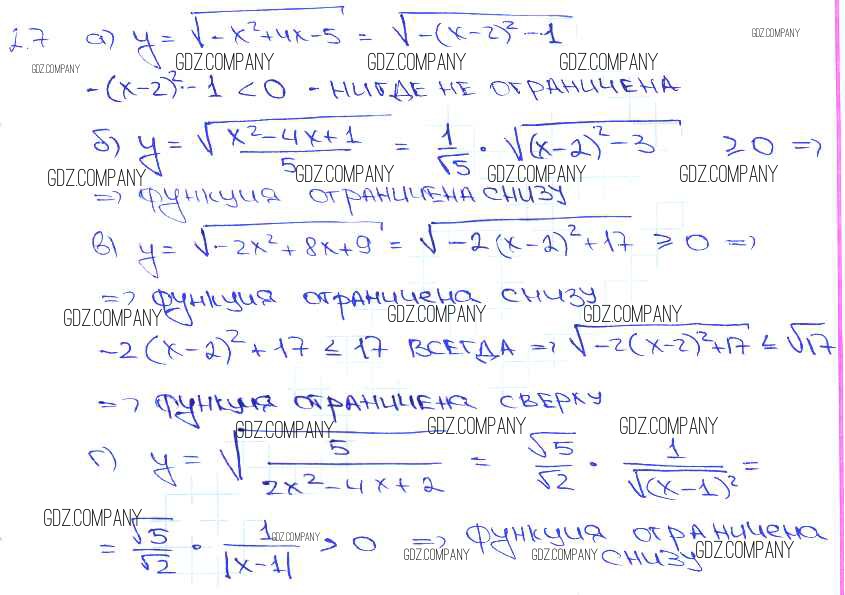 2.7 а) y = √(-x²+4x-5) = √(-(x-2)²-1)
GDZ.COMPANY
GDZ.COMPANY GDZ.COMPANY GDZ.COMPANY GDZ.COMPANY
-(x-2)²-1 < 0 - НИГДЕ НЕ ОГРАНИЧЕНА
б) y = √((x²-4x+1)/5) = 1/√5 · √((x-2)²-3) ≥ 0 =>
GDZ.COMPANY GDZ.COMPANY GDZ.COMPANY GDZ.COMPANY
=> ФУНКЦИЯ ОГРАНИЧЕНА СНИЗУ
в) y = √(-2x²+8x+9) = √(-2(x-2)²+17) ≥ 0 =>
=> ФУНКЦИЯ ОГРАНИЧЕНА СНИЗУ
GDZ.COMPANY GDZ.COMPANY GDZ.COMPANY
-2(x-2)²+17 ≤ 17 ВСЕГДА => √(-2(x-2)²+17) ≤ √17
=> ФУНКЦИЯ ОГРАНИЧЕНА СВЕРХУ
GDZ.COMPANY GDZ.COMPANY GDZ.COMPANY
г) y = √(5/(2x²-4x+2)) = √5/√2 · 1/√((x-1)²) =
GDZ.COMPANY
= √5/√2 · 1/|x-1| > 0 => ФУНКЦИЯ ОГРАНИЧЕНА
GDZ.COMPANY
СНИЗУ
GDZ.COMPANY GDZ.COMPANY GDZ.COMPANY